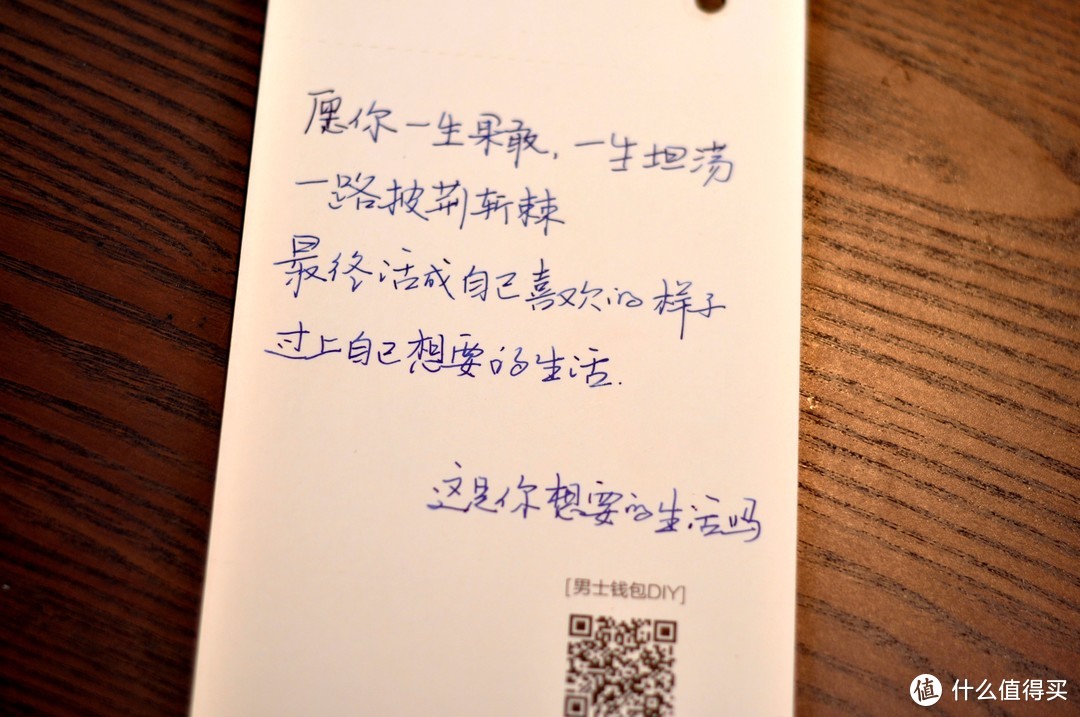 愿你一生果敢，一生坦荡
一路披荆斩棘
最终活成自己喜欢的样子
过上自己想要的生活.
这是你想要的生活吗
[男士钱包DIY]
值 什么值得买